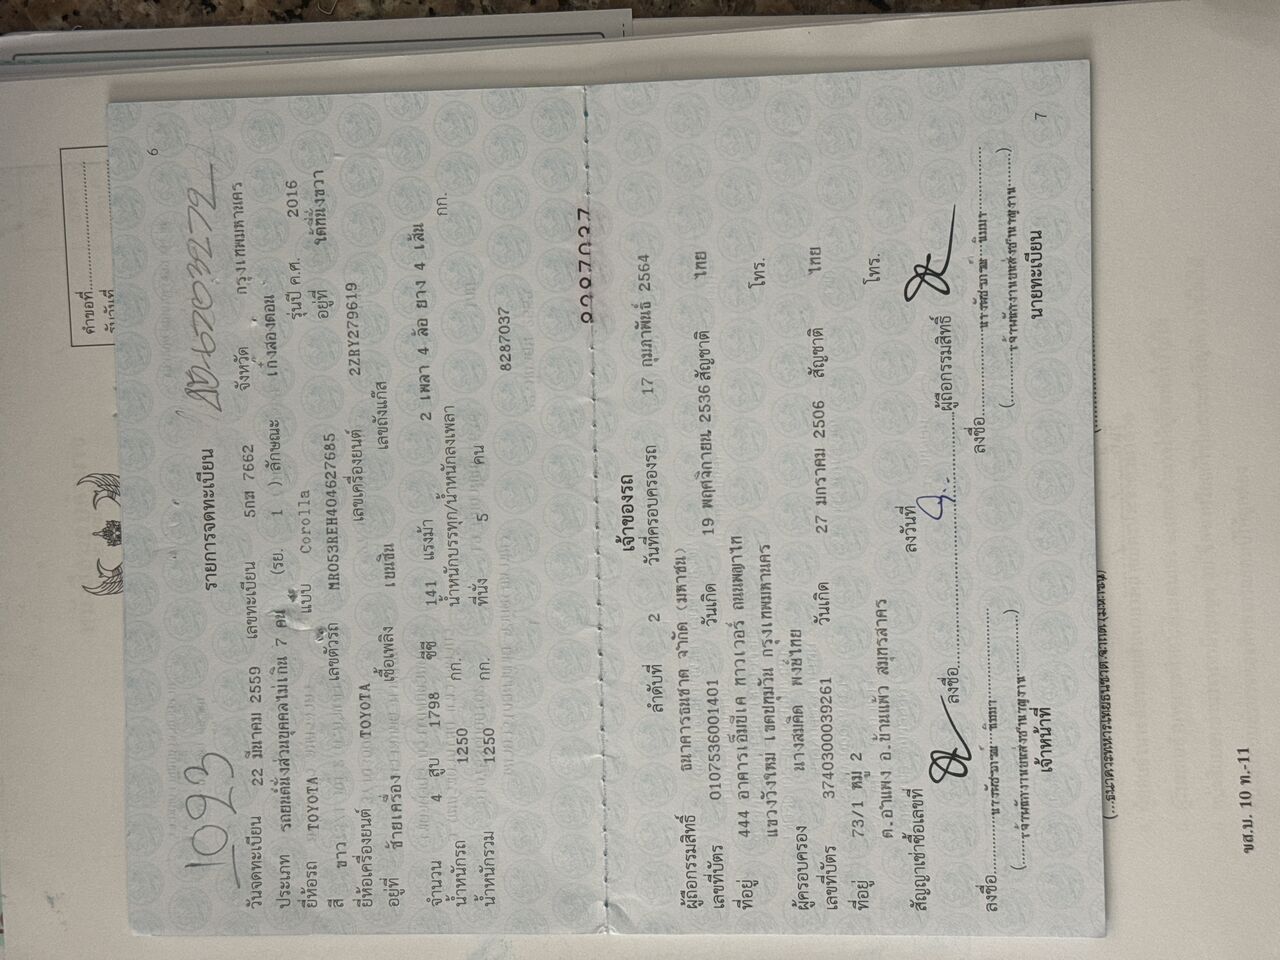 คำขอที่
6
1093
รายการจดทะเบียน
วันจดทะเบียน 22 มีนาคม 2559 เลขทะเบียน 5กฬ 7662 จังหวัด กรุงเทพมหานคร
ประเภท รถยนต์นั่งส่วนบุคคลไม่เกิน 7 คน (รย. 1 ) ลักษณะ เก๋งสองตอน
ยี่ห้อรถ TOYOTA แบบ Corolla รุ่นปี ค.ศ. 2016
สี ขาว เลขตัวรถ MR053REH404627685 อยู่ที่ ใต้ที่นั่งขวา
ยี่ห้อเครื่องยนต์ TOYOTA เลขเครื่องยนต์ 2ZRY279619
อยู่ที่ ซ้ายเครื่อง เชื้อเพลิง เบนซิน เลขถังแก๊ส
จำนวน 4 สูบ 1798 ซีซี 141 แรงม้า 2 เพลา 4 ล้อ ยาง 4 เส้น
น้ำหนักรถ 1250 กก. น้ำหนักบรรทุก/น้ำหนักลงเพลา กก.
น้ำหนักรวม 1250 กก. ที่นั่ง 5 คน
8287037
เจ้าของรถ
ลำดับที่ 2 วันที่ครอบครองรถ 17 กุมภาพันธ์ 2564
ผู้ถือกรรมสิทธิ์ ธนาคารธนชาต จำกัด (มหาชน)
เลขที่บัตร 0107536001401 วันเกิด 19 พฤศจิกายน 2536 สัญชาติ ไทย
ที่อยู่ 444 อาคารเอ็มบีเค ทาวเวอร์ ถนนพญาไท โทร.
แขวงวังใหม่ เขตปทุมวัน กรุงเทพมหานคร
ผู้ครอบครอง นางสมคิด พงษ์ไทย
เลขที่บัตร 3740300039261 วันเกิด 27 มกราคม 2506 สัญชาติ ไทย
ที่อยู่ 73/1 หมู่ 2 โทร.
ต.อำแพง อ.บ้านแพ้ว สมุทรสาคร
สัญญาเช่าซื้อเลขที่ ลงวันที่
ลงชื่อ ผู้ถือกรรมสิทธิ์
ลงชื่อ ลงชื่อ
เจ้าหน้าที่ นายทะเบียน
7
ขส.บ. 10 ท.-11